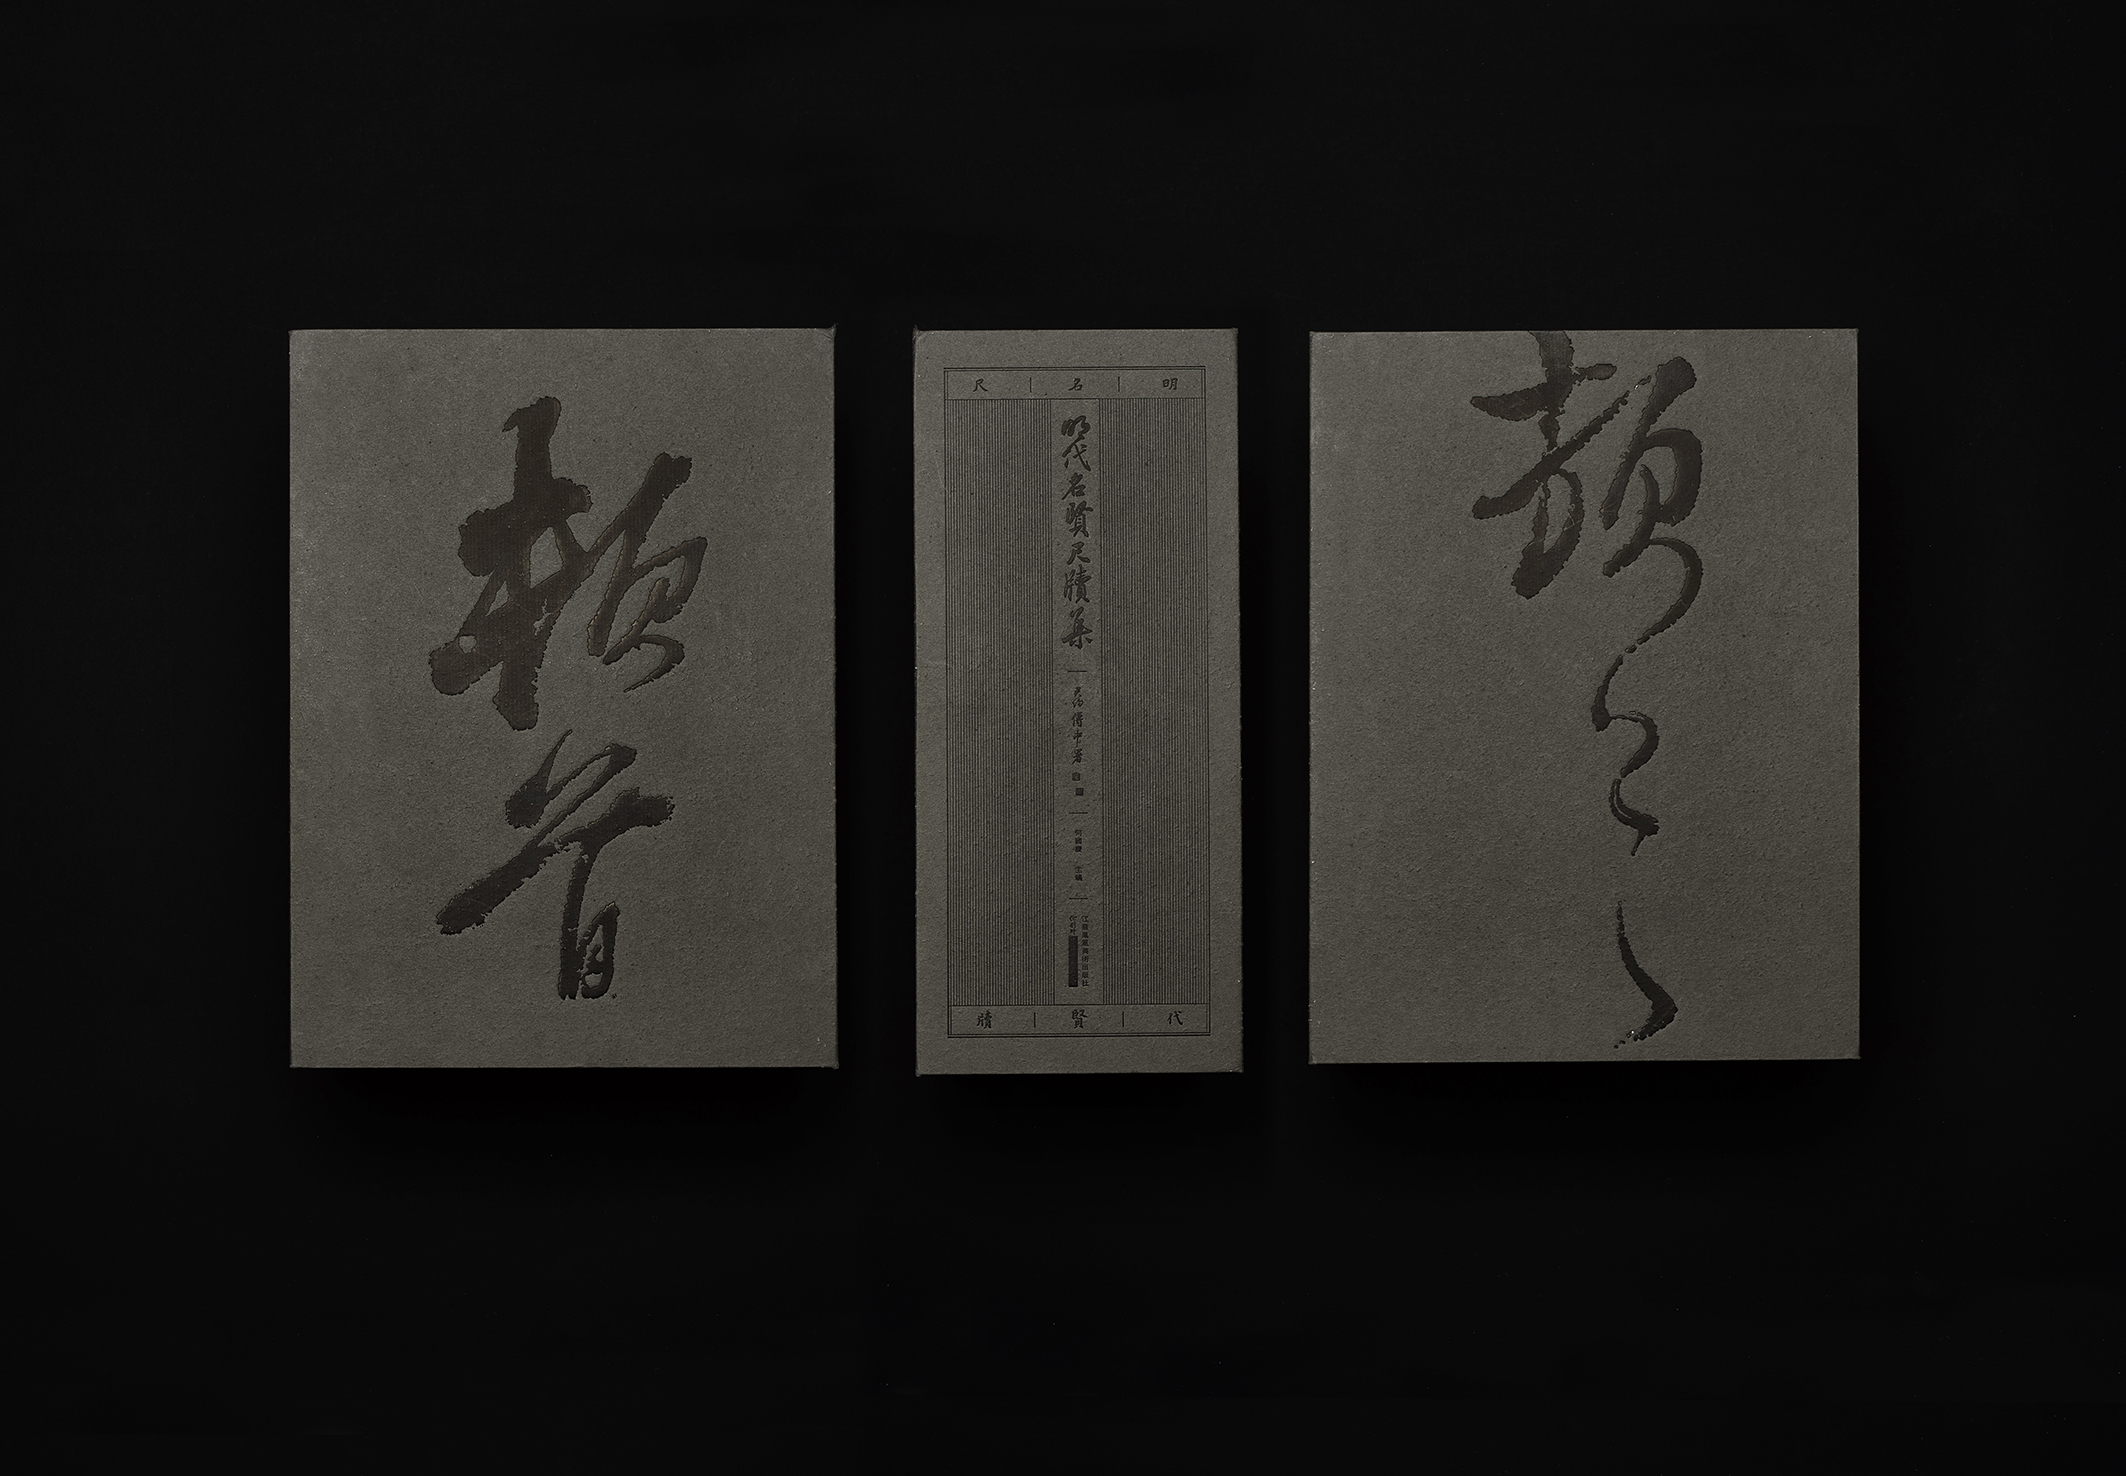 頓首
尺 名 明
明代名賢尺牘集
何國慶 主編
江蘇鳳凰美術出版社
牘 賢 代
頓首